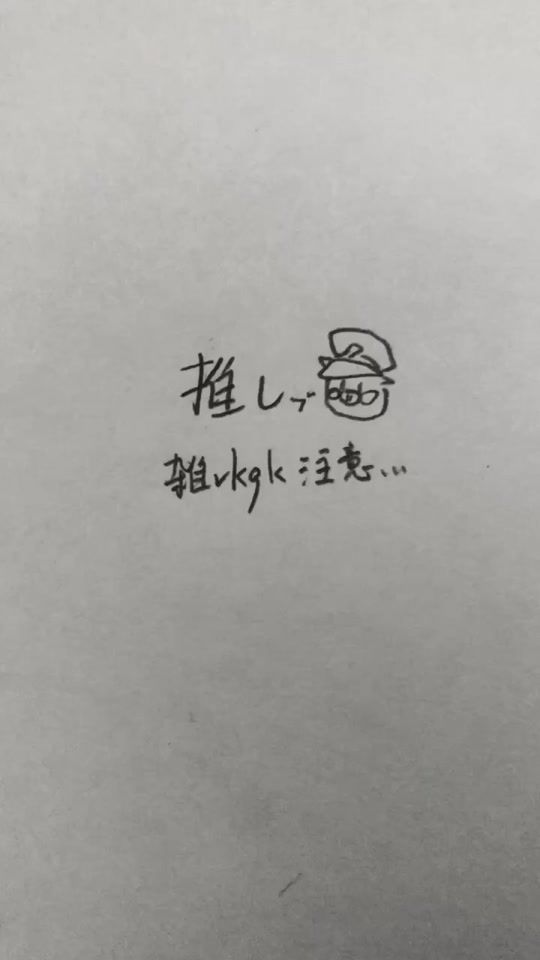 推し
雑rkgk注意...